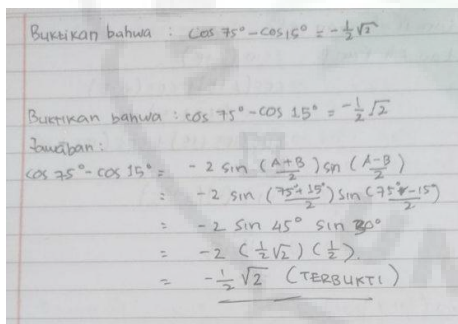 Buktikan bahwa : cos 75° - cos 15° = -1/2 √2
Buktikan bahwa : cos 75° - cos 15° = -1/2 √2
Jawaban:
cos 75° - cos 15° = -2 sin (A+B/2) sin (A-B/2)
= -2 sin (75°+15°/2) sin (75°-15°/2)
= -2 sin 45° sin 30°
= -2 (1/2 √2) (1/2).
= -1/2 √2 (TERBUKTI)